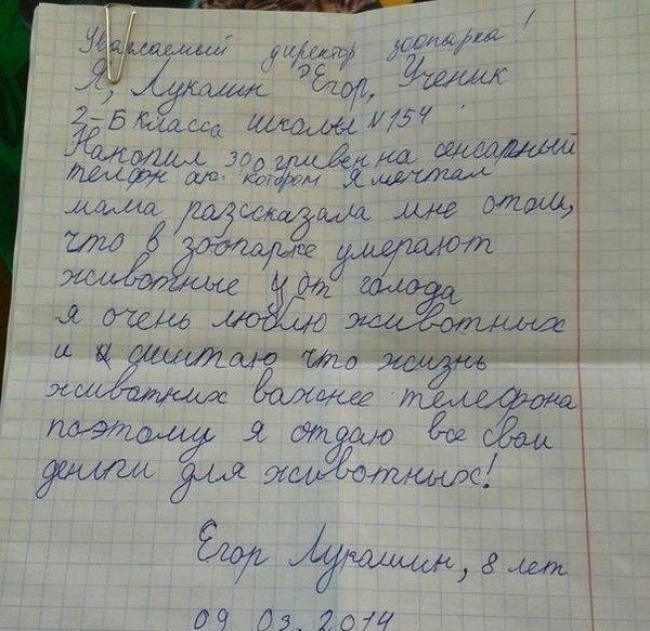 Уважаемый директор зоопарка!
Я, Лукашин Егор, Ученик
2-Б класса школы №154
Накопил 300 гривен на сенсарный
телфон котором я мечтал
мама разссказала мне отом,
что в зоопарке умерают
животные от голода
я очень люблю животных
и сшитаю что жизнь
животних важнее телефона
поэтому я отдаю все свои
деньги для животных!
Егор Лукашин, 8 лет
09 03. 2014